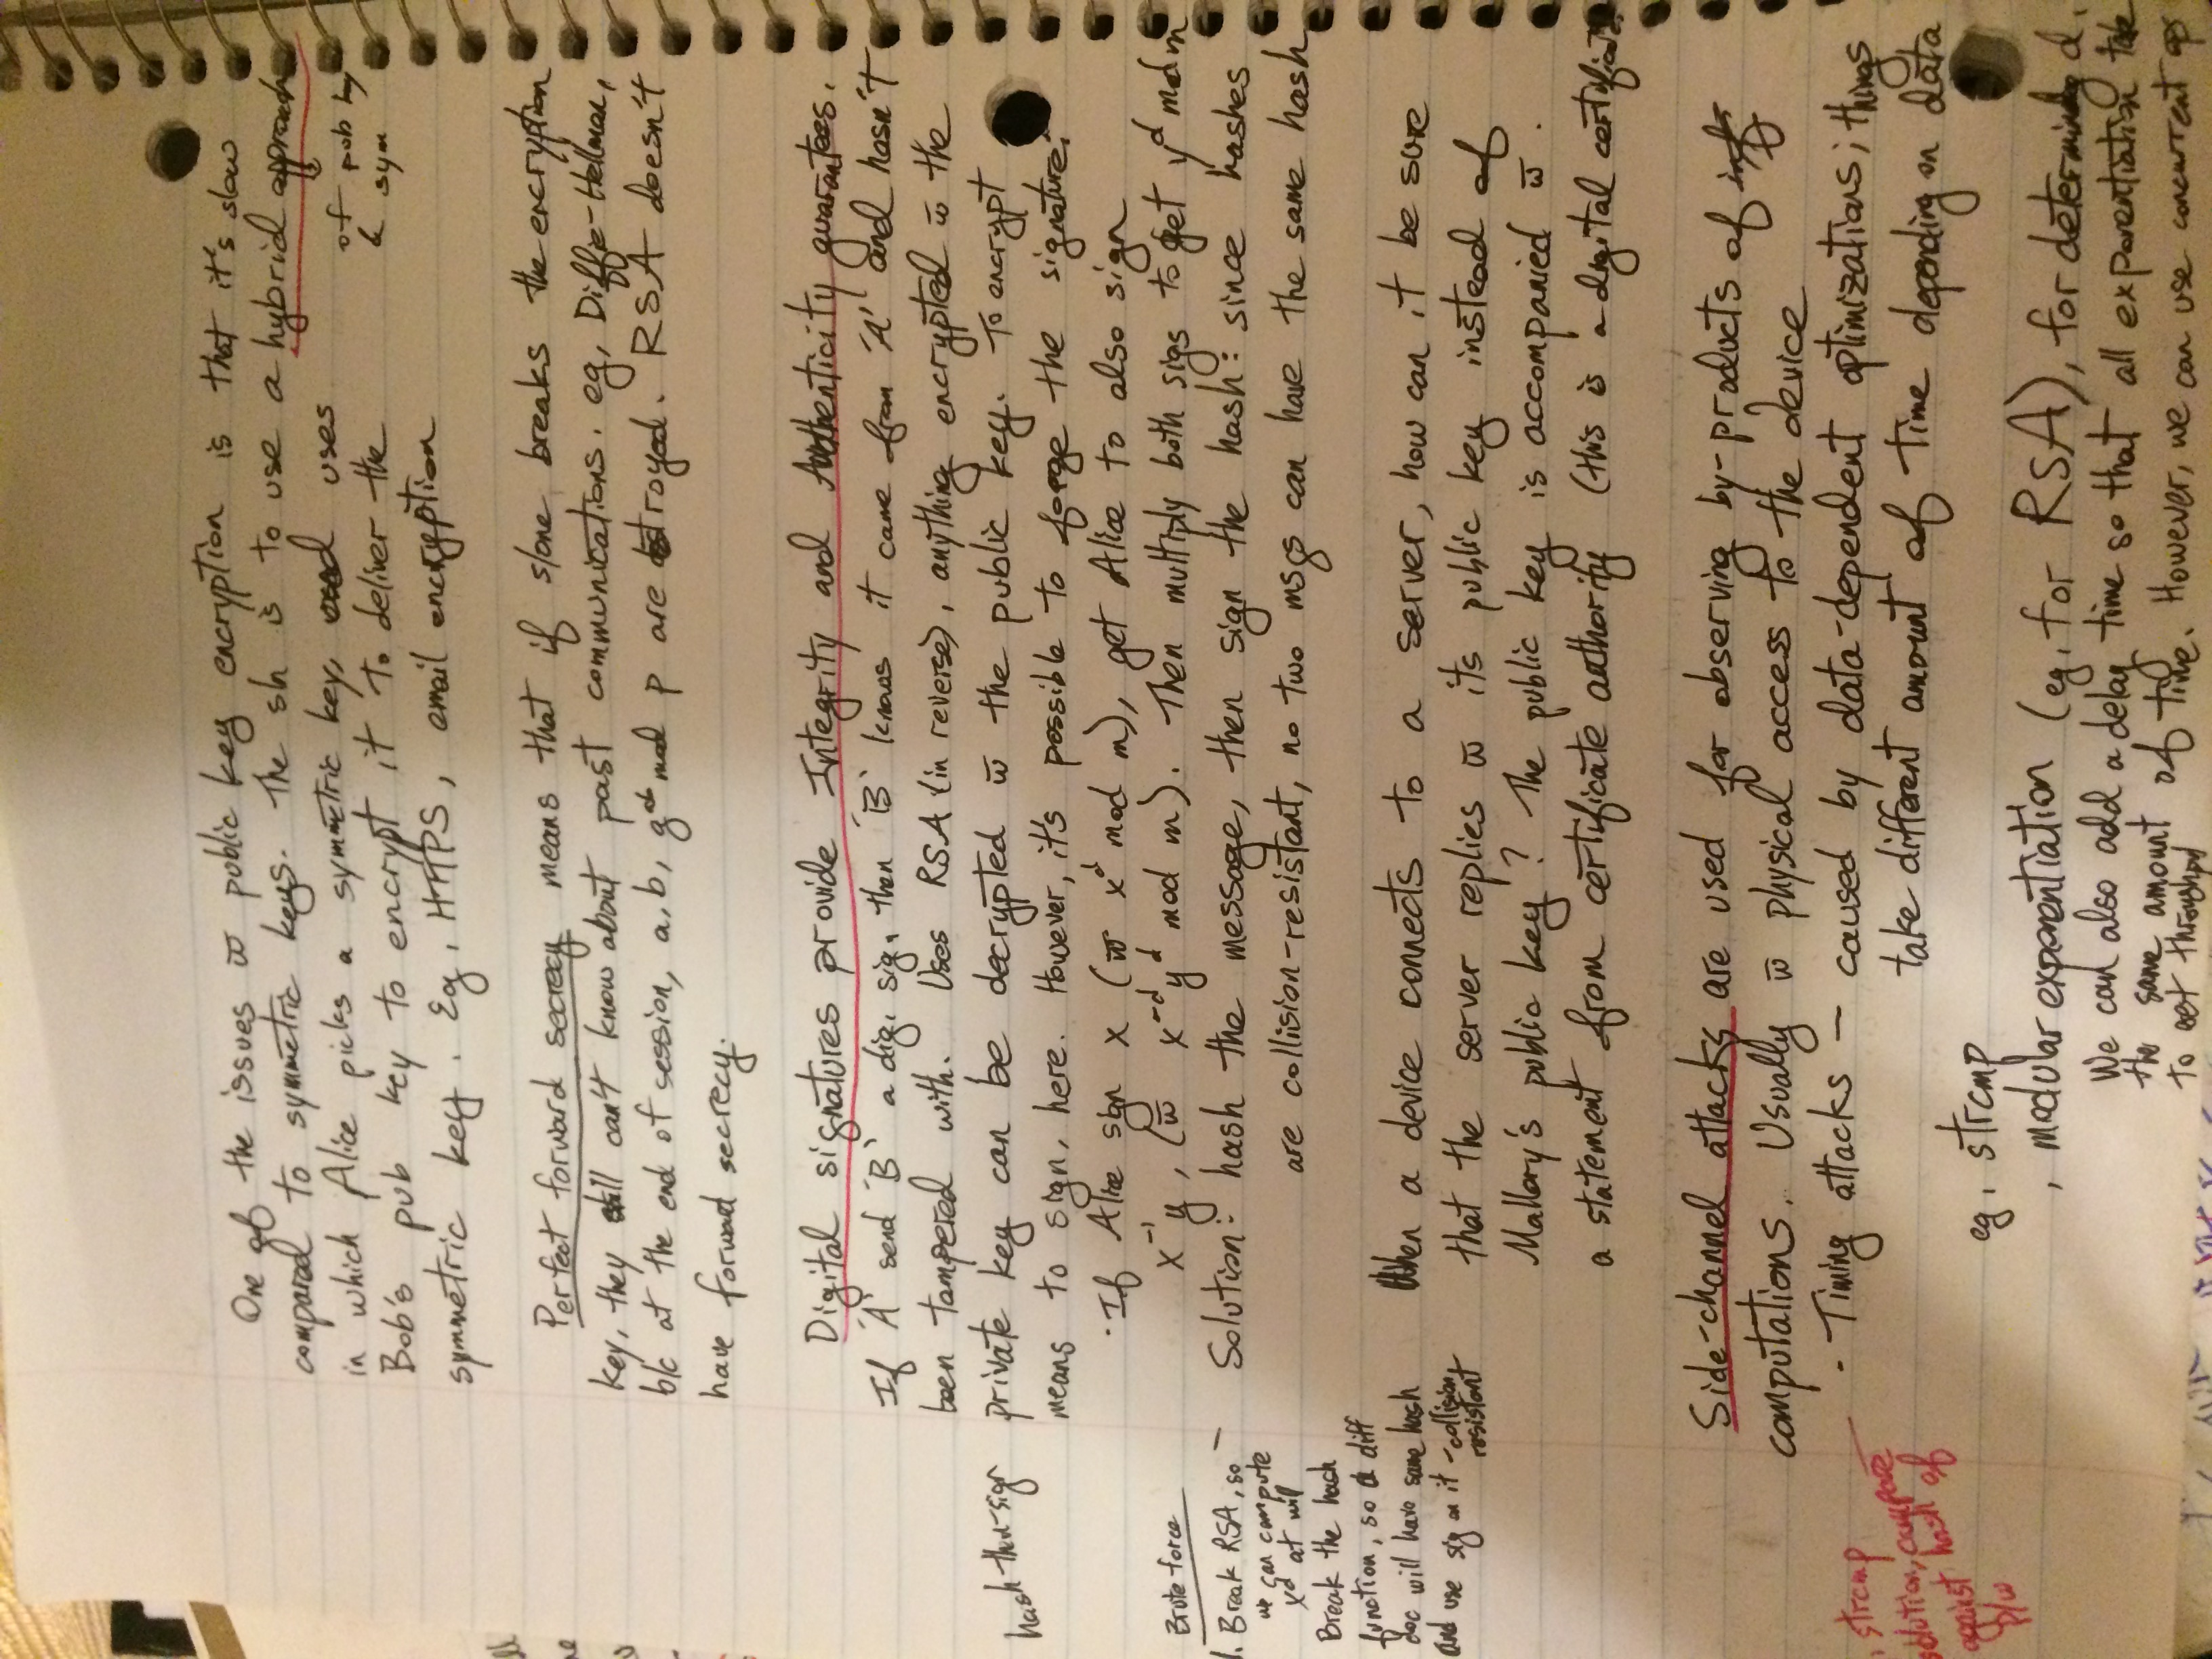 One of the issues w̅ public key encryption is that it's slow
compared to symmetric keys. The sln is to use a hybrid approach
of pub key
& sym
in which Alice picks a symmetric key, uses
Bob's pub key to encrypt it to deliver the
symmetric key. Eg, HTTPS, email encryption
Perfect forward secrecy means that if s/one breaks the encryption
key, they still can't know about past communications. eg, Diffie-Hellman,
b/c at the end of session, a, b, g^ab mod p are destroyed. RSA doesn't
have forward secrecy.
Digital signatures provide Integrity and Authenticity guarantees.
If 'A' send 'B' a dig. sig, then 'B' knows it came from 'A' and hasn't
been tampered with. Uses RSA (in reverse), anything encrypted w̅ the
hash-then-sign
private key can be decrypted w̅ the public key. To encrypt
means to sign, here. However, it's possible to forge the signature:
· If Alice sign x (w̅ x^d mod m), get Alice to also sign
x^-1 y, (w̅ x^-d y^d mod m). Then multiply both sigs to get y^d mod m
Solution: hash the message, then sign the hash: since hashes
are collision-resistant, no two msgs can have the same hash
Brute force
1. Break RSA, so
we can compute
x^d at will
Break the hash
function, so a diff
doc will have same hash
and use sig on it - collision
resistant
When a device connects to a server, how can it be sure
that the server replies w̅ its public key instead of
Mallory's public key? The public key is accompanied w̅
a statement from certificate authority (this is a digital certificate
Side-channel attacks are used for observing by-products of
computations. Usually w̅ physical access to the device
- Timing attacks — caused by data-dependent optimizations; things
take different amount of time depending on data
, strcmp
solution, compare
against hash of
p/w
eg, strcmp
, modular exponentiation (eg, for RSA), for determining d.
We can also add a delay time so that all exponentiation take
the same amount of time. However, we can use concurrent
to get throughput